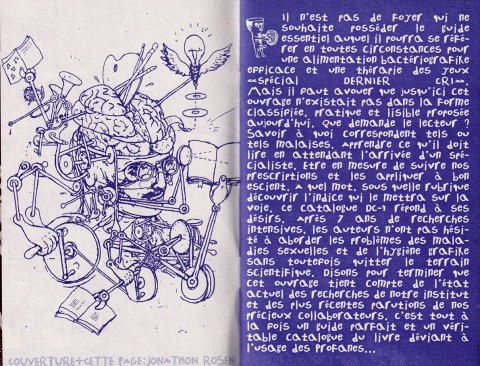 il n'est pas de foyer qui ne
souhaite posséder le guide
essentiel auquel il pourra se réfé-
rer en toutes circonstances pour
une alimentation bactériografike
efficace et une thérapie des yeux
«spécial DERNIER CRI».
Mais il faut avouer que jusqu'ici cet
ouvrage n'existait pas dans la forme
classifiée, pratique et lisible proposée
aujourd'hui. Que demande le lecteur ?
Savoir à quoi correspondent tels ou
tels malaises. Apprendre ce qu'il doit
lire en attendant l'arrivée d'un spé-
cialiste. Etre en mesure de suivre nos
prescriptions et les appliquer à bon
escient. A quel mot, sous quelle rubrique
découvrir l'indice qui le mettra sur la
voie. ce catalogue DC-1 répond à ses
désirs. Après 7 ans de recherches
intensives, les auteurs n'ont pas hési-
té à aborder les problèmes des mala-
dies sexuelles et de l'hygiène grafike
sans toutefois quitter le terrain
scientifique. Disons pour terminer que
cet ouvrage tient compte de l'état
actuel des recherches de notre institut
et des plus récentes parutions de nos
précieux collaborateurs. c'est tout à
la fois un guide parfait et un véri-
table catalogue du livre déviant à
l'usage des profanes...
COUVERTURE+CETTE PAGE:JONATHON ROSEN